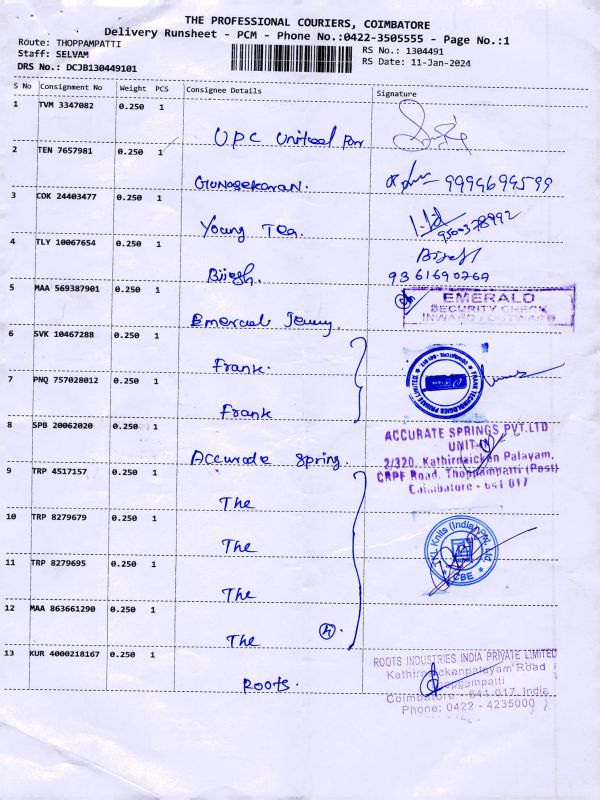 THE PROFESSIONAL COURIERS, COIMBATORE
Delivery Runsheet - PCM - Phone No.:0422-3505555 - Page No.:1
Route: THOPPAMPATTI
RS No.: 1304491
Staff: SELVAM
RS Date: 11-Jan-2024
DRS No.: DCJB130449101
S No Consignment No Weight PCS Consignee Details Signature
1 TVM 3347082 0.250 1
UPC United
2 TEN 7657981 0.250 1
Gunasekaran. 9994694599
3 COK 24403477 0.250 1
Young Tea. 9500378992
4 TLY 10067654 0.250 1
Brijesh. 9361690769
5 MAA 569387901 0.250 1
EMERALD
SECURITY CHECK
INWARD / OUTWARD
6 SVK 10467288 0.250 1
Frank.
FRANK TECHNOLOGIES PRIVATE LIMITED
7 PNQ 757028012 0.250 1
Frank
8 SPB 20062020 0.250 1
Accurade Spring.
ACCURATE SPRINGS PVT.LTD
UNIT-IV
2/320, Kathirnaicken Palayam,
CRPF Road, Thoppampatti (Post)
Coimbatore - 641 017
9 TRP 4517157 0.250 1
The
10 TRP 8279679 0.250 1
The
Knits (India) Pvt. Ltd.
CBE
11 TRP 8279695 0.250 1
The
12 MAA 863661290 0.250 1
The 4.
13 KUR 4000218167 0.250 1
Roots.
ROOTS INDUSTRIES INDIA PRIVATE LIMITED
Kathirnaickenpalayam Road
Thoppampatti
Coimbatore - 641 017, India
Phone: 0422 - 4235000